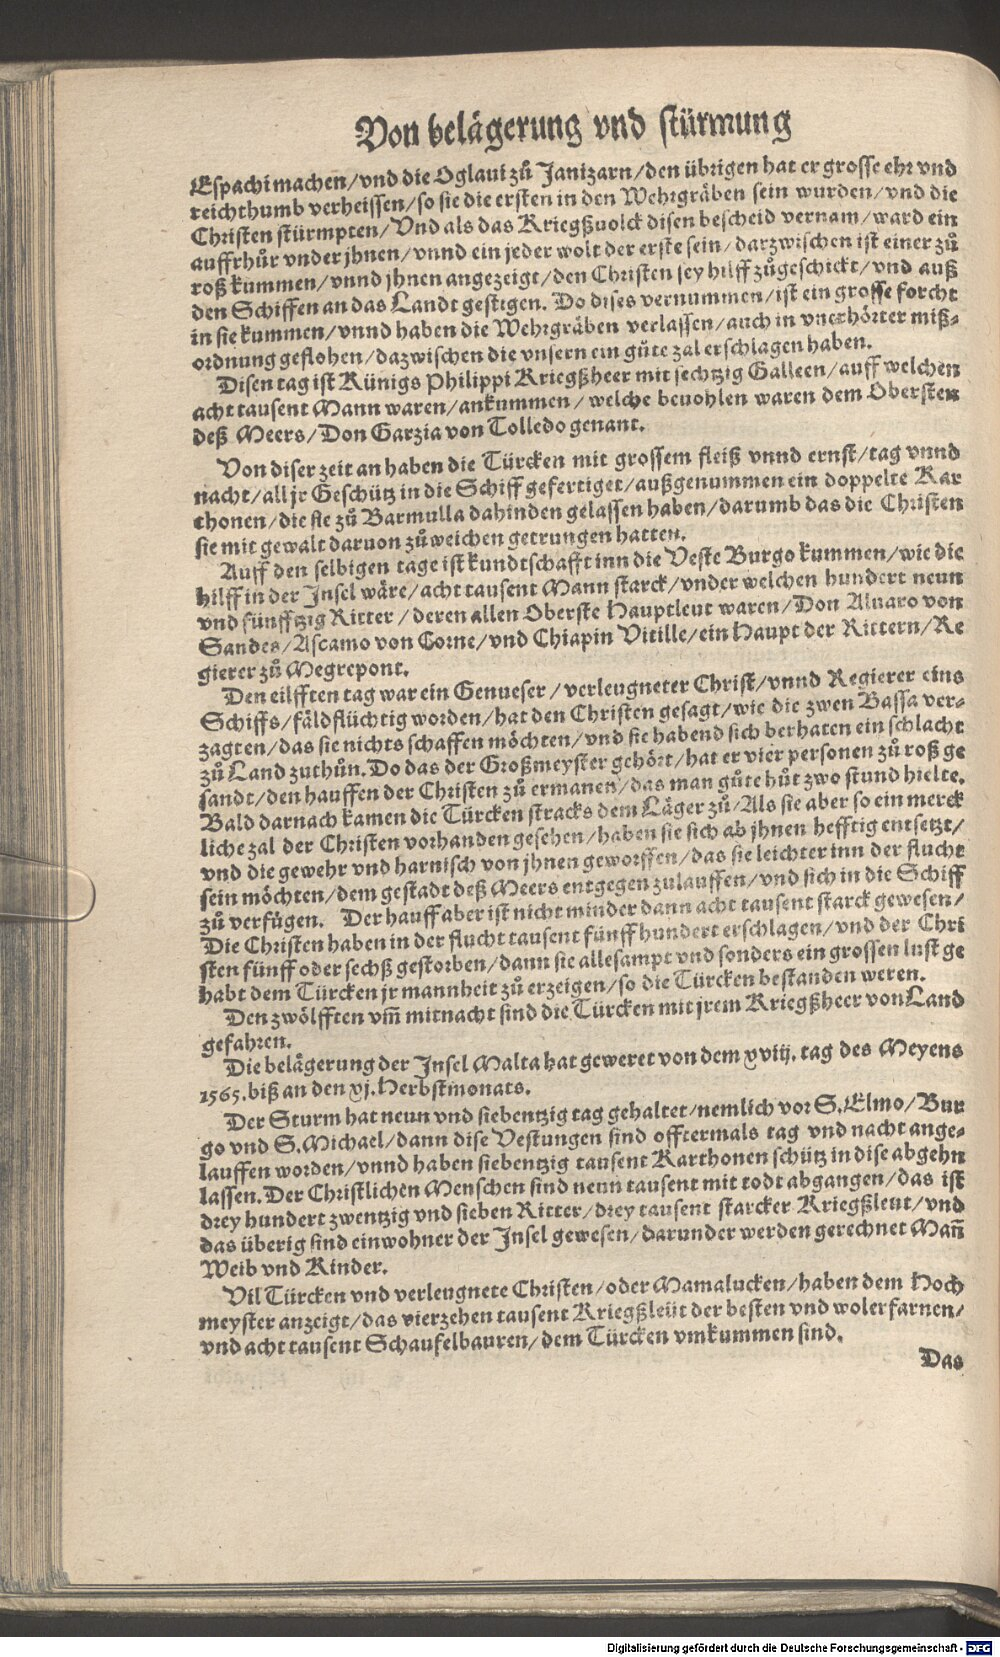 Von belägerung vnd stürmung
Espachi machen/vnd die Oglaui zů Janizarn/den übrigen hat er grosse ehr vnd
reichthumb verheissen/so sie die ersten in den Wehrgräben sein wurden/vnd die
Christen stürmpten/Vnd als das Kriegßuolck disen bescheid vernam/ward ein
auffrhůr vnder jhnen/vnnd ein jeder wolt der erste sein/darzwischen ist einer zů
roß kummen/vnnd jhnen angezeigt/den Christen sey hilff zůgeschickt/vnd auß
den Schiffen an das Landt gestigen. Do dises vernummen/ist ein grosse forcht
in sie kummen/vnnd haben die Wehrgräben verlassen/auch in vnerhörter miß-
ordnung geflohen/dazwischen die vnsern ein gůte zal erschlagen haben.
Disen tag ist Künigs Philippi Kriegßheer mit sechtzig Galleen/auff welchen
acht tausent Mann waren/ankummen/welche beuohlen waren dem Obersten
deß Meers/Don Garzia von Tolledo genant.
Von diser zeit an haben die Türcken mit grossem fleiß vnnd ernst/tag vnnd
nacht/all jr Geschütz in die Schiff gefertiget/außgenummen ein doppelte Kar
thonen/die sie zů Barmulla dahinden gelassen haben/darumb das die Christen
sie mit gewalt daruon zů weichen getrungen hatten.
Auff den selbigen tage ist kundtschafft inn die Veste Burgo kummen/wie die
hilff in der Insel wäre/acht tausent Mann starck/vnder welchen hundert neun
vnd fünfftzig Ritter/deren allen Oberste Hauptleut waren/Don Aluaro von
Sandes/Ascamo von Corne/vnd Chiapin Vitille/ein Haupt der Rittern/Re
gierer zů Negrepont.
Den eilfften tag war ein Genueser/verleugneter Christ/vnnd Regierer eins
Schiffs/fäldflüchtig worden/hat den Christen gesagt/wie die zwen Bassa ver-
zagten/das sie nichts schaffen möchten/vnd sie habend sich berhaten ein schlacht
zů Land zuthůn. Do das der Großmeyster gehört/hat er vier personen zů roß ge
sandt/den hauffen der Christen zů ermanen/das man gůte hůt zwo stund hielte.
Bald darnach kamen die Türcken stracks dem Läger zů/Als sie aber so ein merck
liche zal der Christen vorhanden gesehen/haben sie sich ab jhnen hefftig entsetzt/
vnd die gewehr vnd harnisch von jhnen geworffen/das sie leichter inn der flucht
sein möchten/dem gestadt deß Meers entgegen zulauffen/vnd sich in die Schiff
zů verfügen. Der hauff aber ist nicht minder dann acht tausent starck gewesen/
Die Christen haben in der flucht tausent fünff hundert erschlagen/vnd der Chri
sten fünff oder sechß gestorben/dann sie allesampt vnd sonders ein grossen lust ge
habt dem Türcken jr mannheit zů erzeigen/so die Türcken bestanden weren.
Den zwölfften vm̃ mitnacht sind die Türcken mit jrem Kriegßheer von Land
gefahren.
Die belägerung der Insel Malta hat geweret von dem xviij. tag des Meyens
1565. biß an den xj. Herbstmonats.
Der Sturm hat neun vnd siebentzig tag gehaltet/nemlich vor S. Elmo/Bur
go vnd S. Michael/dann dise Vestungen sind offtermals tag vnd nacht ange-
lauffen worden/vnnd haben siebentzig tausent Karthonen schütz in dise abgehn
lassen. Der Christlichen Menschen sind neun tausent mit todt abgangen/das ist
drey hundert zwentzig vnd sieben Ritter/drey tausent starcker Kriegßleut/vnd
das überig sind einwohner der Insel gewesen/darunder werden gerechnet Mañ
Weib vnd Kinder.
Vil Türcken vnd verleugnete Christen/oder Mamalucken/haben dem Hoch
meyster anzeigt/das vierzehen tausent Kriegßleüt der besten vnd wolerfarnen/
vnd acht tausent Schaufelbauren/dem Türcken vmkummen sind.
Das
Digitalisierung gefördert durch die Deutsche Forschungsgemeinschaft - DFG